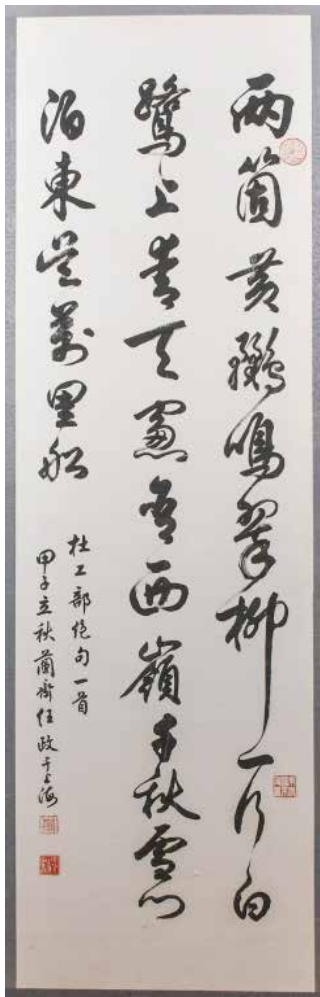 两箇黄鸝鳴翠柳一行白
鷺上青天窗含西嶺千秋雪門
泊東吴萬里船
杜工部绝句一首
甲子立秋蘭齋任政于上海